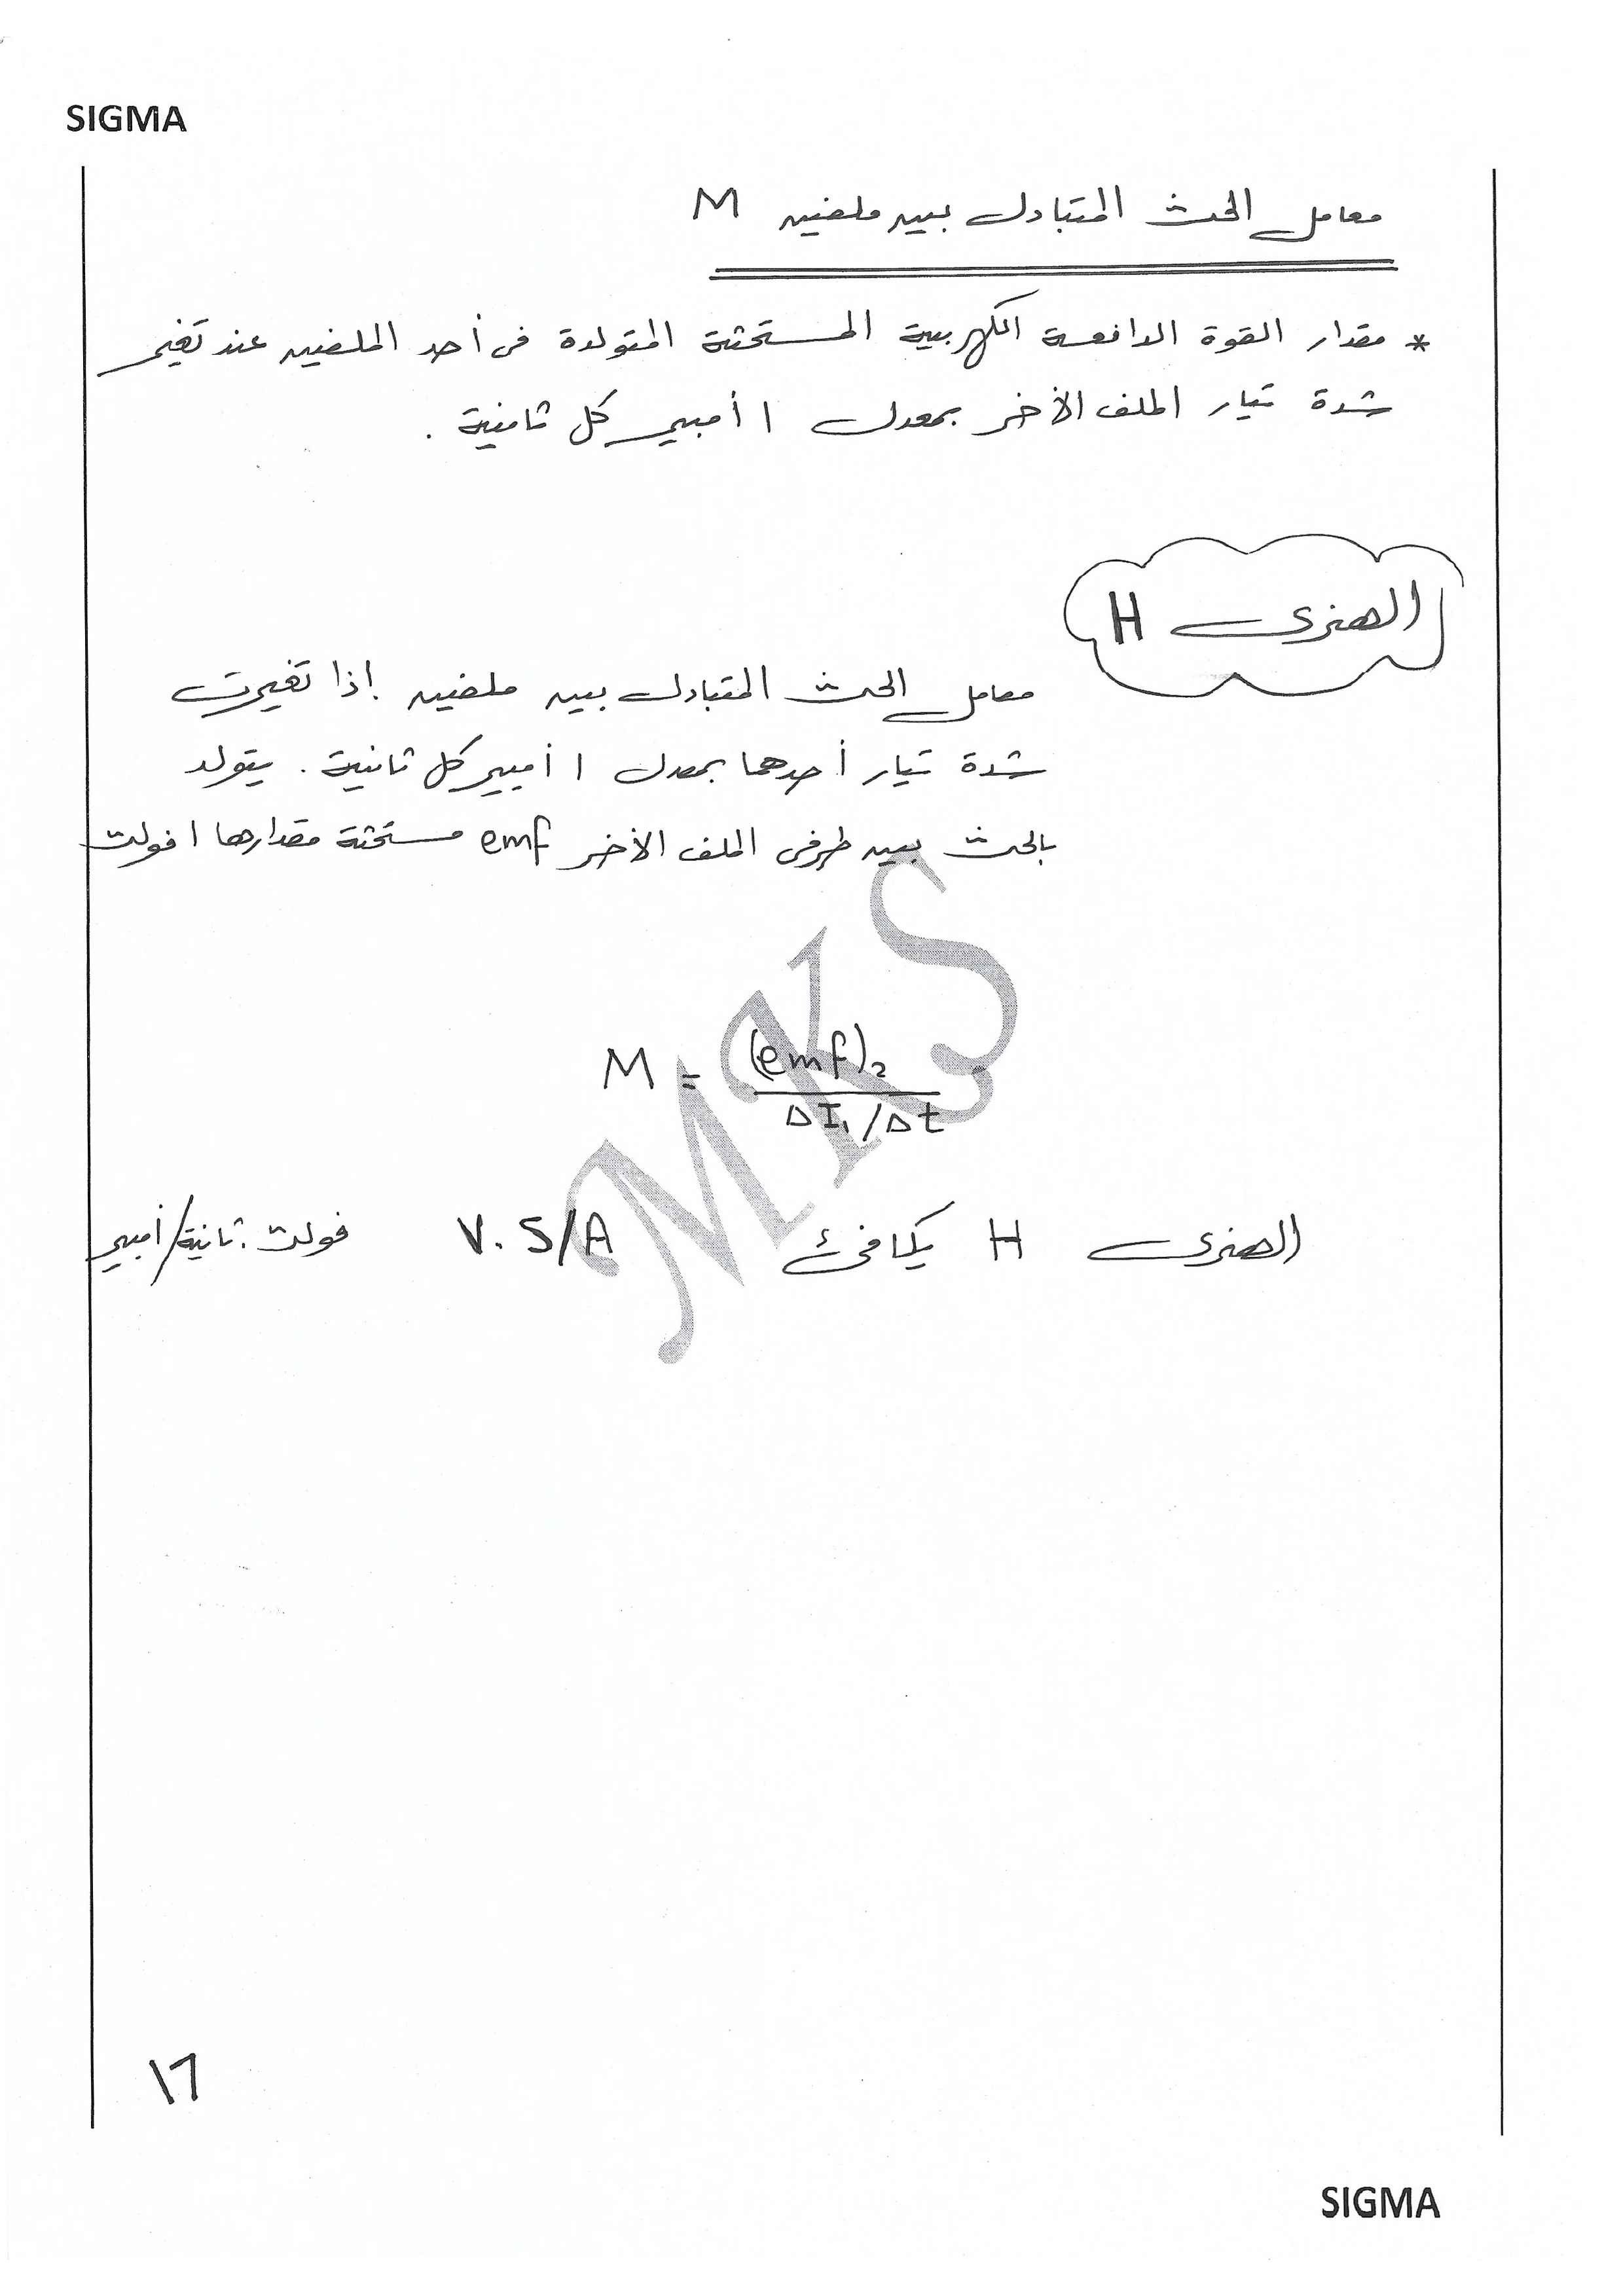 SIGMA
معامل الحث المتبادل بين ملفين M
* مقدار القوة الدافعة الكهربية المستحثة المتولدة فى أحد الملفين عند تغير
شدة تيار الملف الأخر بمعدل ١ أمبير كل ثانية .
الهنرى H
معامل الحث المتبادل بين ملفين إذا تغيرت
شدة تيار أحدهما بمعدل ١ أمبير كل ثانية . يتولد
بالحث بين طرفى الملف الأخر emf مستحثة مقدارها ١ فولت
MKS
M = (emf)₂ / ΔI₁/Δt
الهنرى H يكافئ V.S/A فولت.ثانية/أمبير
١٦
SIGMA